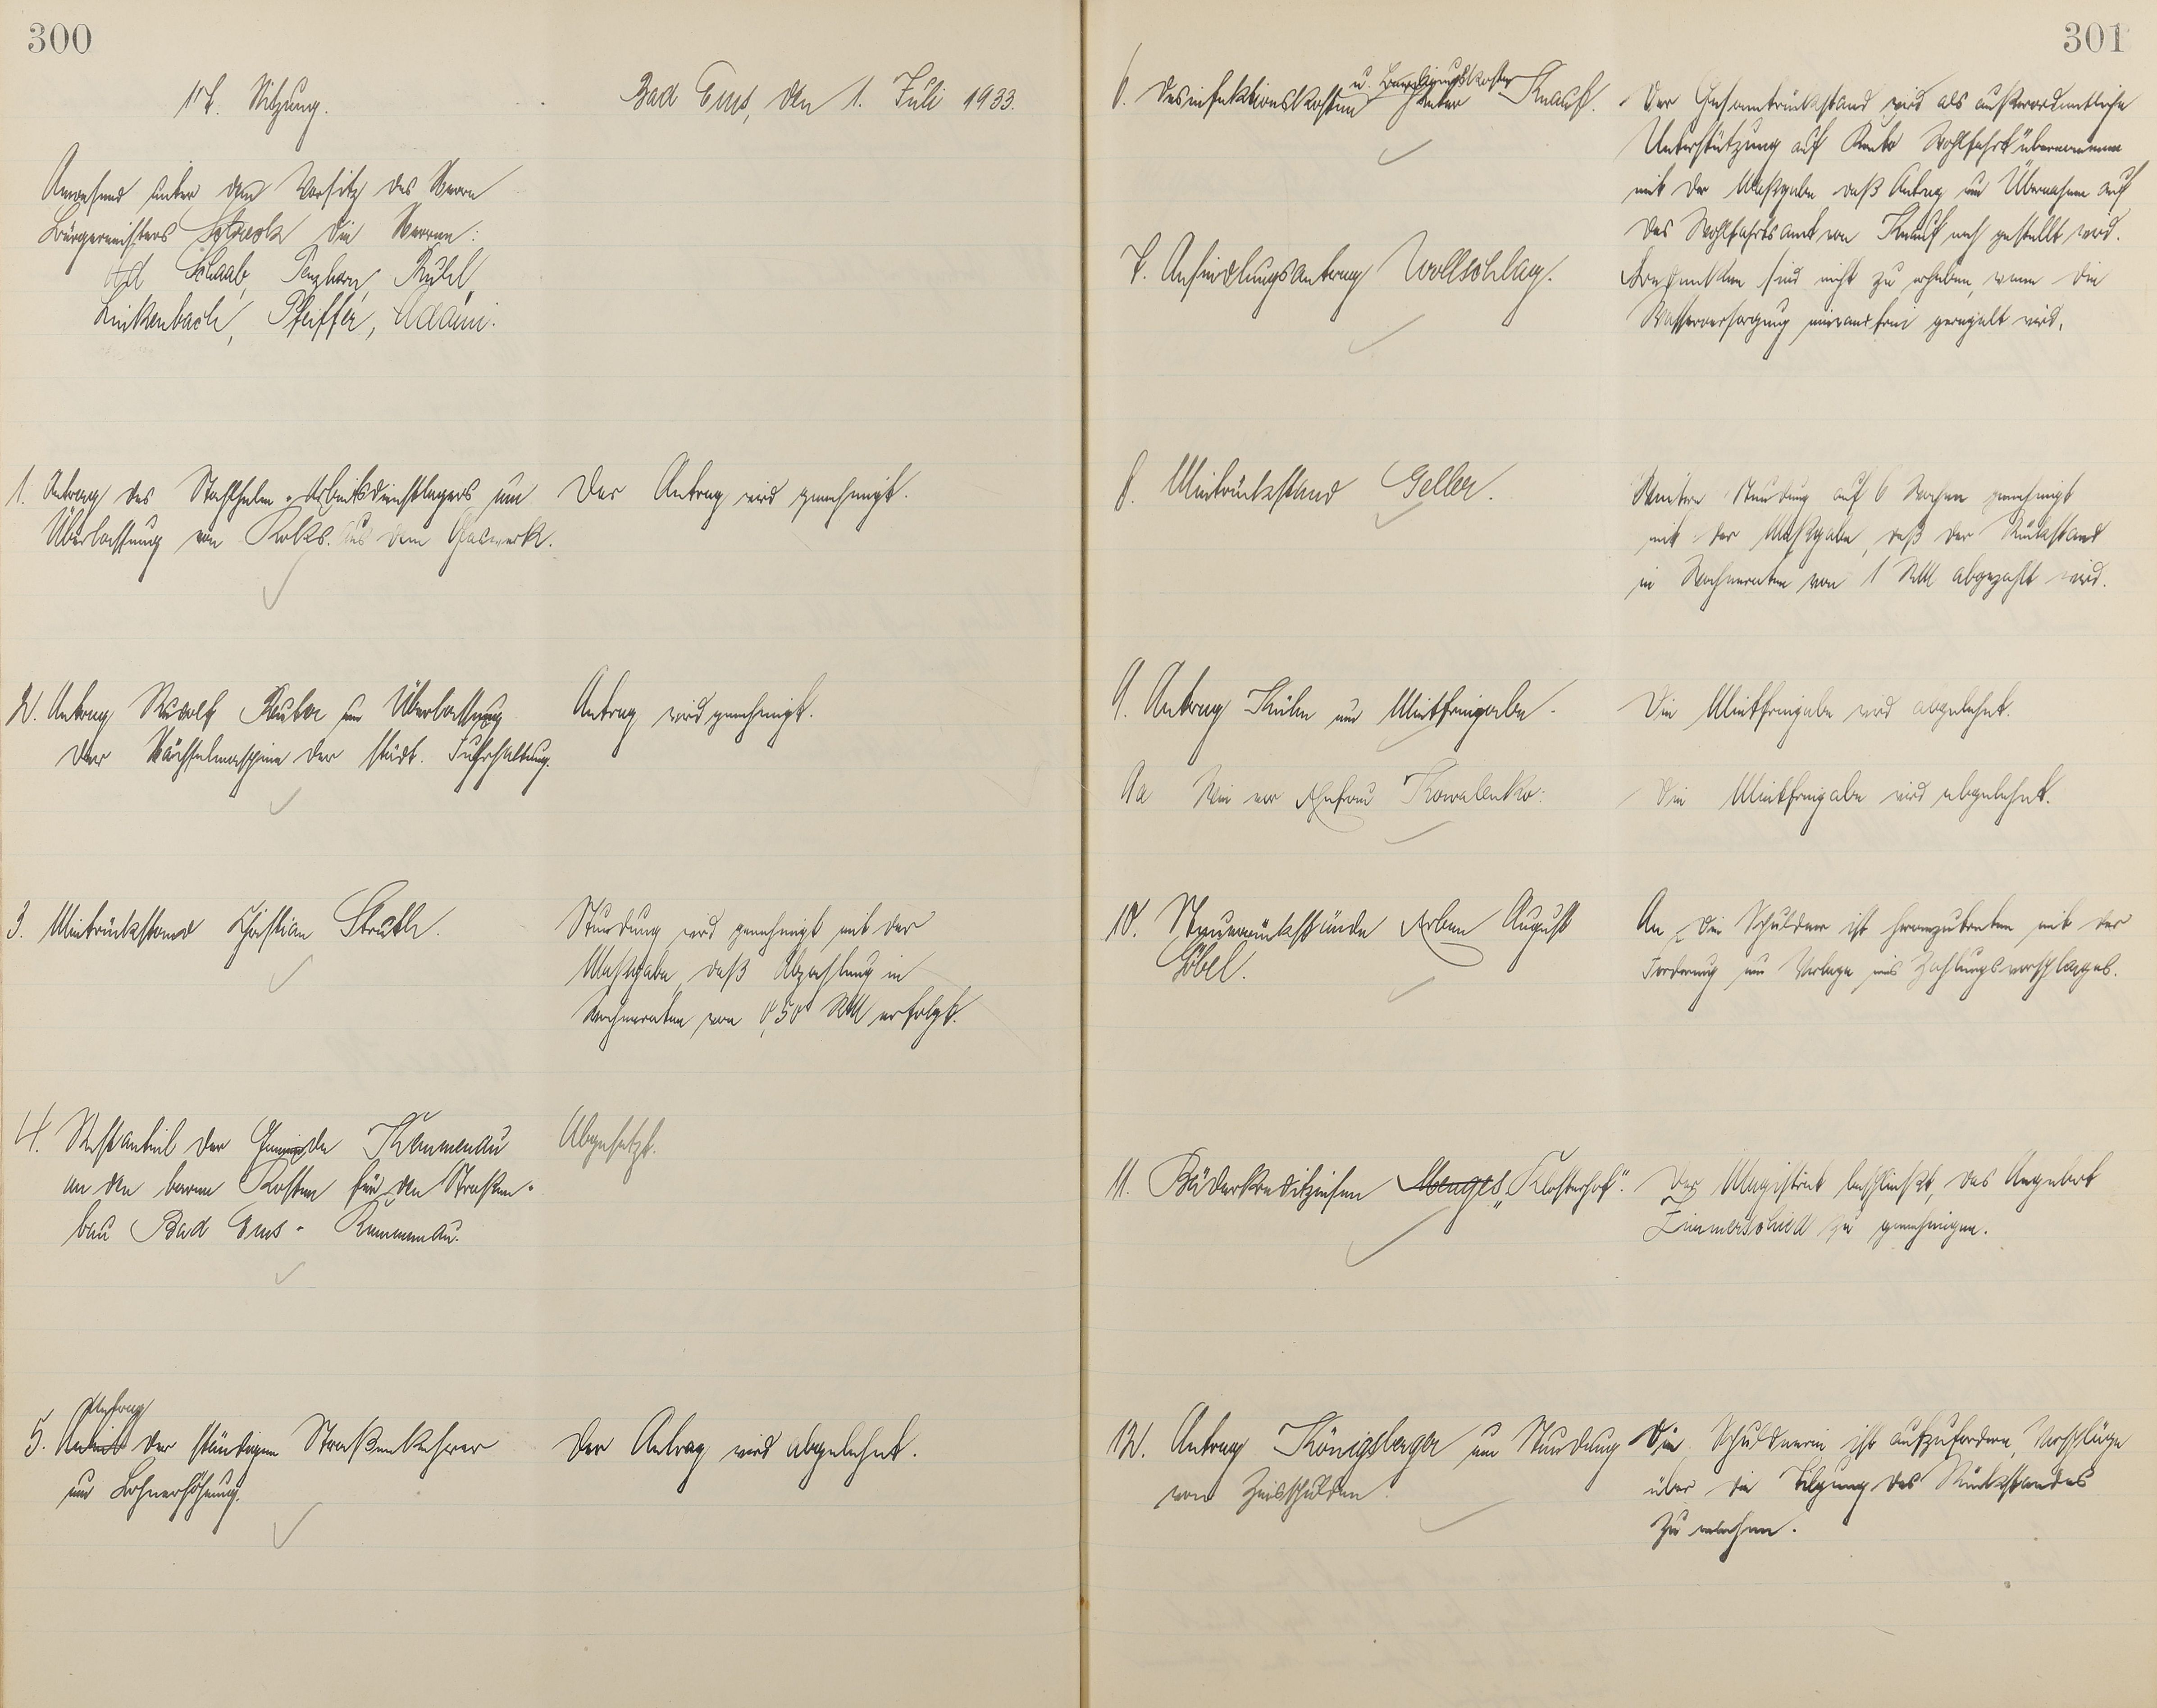 300
17. Sitzung.
Bad Ems, den 1. Juli 1933.
Anwesend unter dem Vorsitz des Herrn
Bürgermeisters die Herren:
Schaab, Penzhorn, Rühl,
Linkenbach, Pfeiffer, Adami.
1. Antrag des Stahlhelm-Arbeitsdienstlagers um
Überlassung von Koks aus dem Gaswerk.
Der Antrag wird genehmigt.
2. Antrag Rudolf um Überlassung
der Häckselmaschine der städt. Fuhrhaltung.
Antrag wird genehmigt.
3. Mietrückstand Christian Struth.
Stundung wird genehmigt mit der
Maßgabe, daß Abzahlung in
Wochenraten von 0,50 RM erfolgt.
4. Restanteil der Gemeinde Kemmenau
an den baren Kosten für den Straßen-
bau Bad Ems - Kemmenau.
Abgesetzt.
5. Antrag der ständigen Straßenkehrer
um Lohnerhöhung.
Der Antrag wird abgelehnt.
301
6. Desinfektionskosten u. Beerdigungskosten Peter Knauf.
Der Gesamtrückstand wird als außerordentliche
Unterstützung auf Konto Wohlfahrt übernommen
mit der Maßgabe daß Antrag um Übernahme auf
das Wohlfahrtsamt von Knauf noch gestellt wird.
7. Ansiedlungsantrag Wollschlag.
sind nicht zu erheben, wenn die
Wasserversorgung einwandfrei geregelt wird.
8. Mietrückstand Geller.
Weitere Stundung auf 6 Wochen genehmigt
mit der Maßgabe, daß der Rückstand
in Wochenraten von 1 RM abgezahlt wird.
9. Antrag Kühn um Mietfreigabe.
Die Mietfreigabe wird abgelehnt.
9a Wie vor Ehefrau Kowalenko:
Die Mietfreigabe wird abgelehnt.
10. Steuerrückstände Erben August
Göbel.
An die Schuldner ist heranzutreten mit der
Forderung um Vorlage eines Zahlungsvorschlages.
11. Bäderkreditzinsen Menges „Klosterhof“.
Der Magistrat beschließt, das Angebot
Zimmerschied zu genehmigen.
12. Antrag Königsberger um Stundung
von Zinsschulden.
Die Schuldnerin ist aufzufordern, Vorschläge
über die Tilgung des Rückstandes
zu machen.